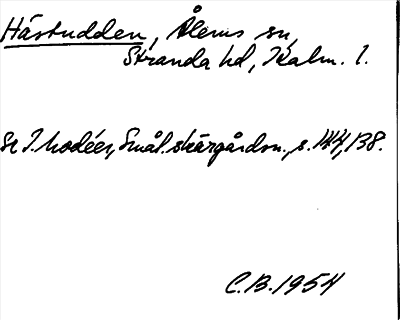 Hästudden, Ålems sn,
Stranda hd, Kalm. l.
Se I. Modéer, Smål. skärgårdsn., s. 144, 138.
C.B. 1954